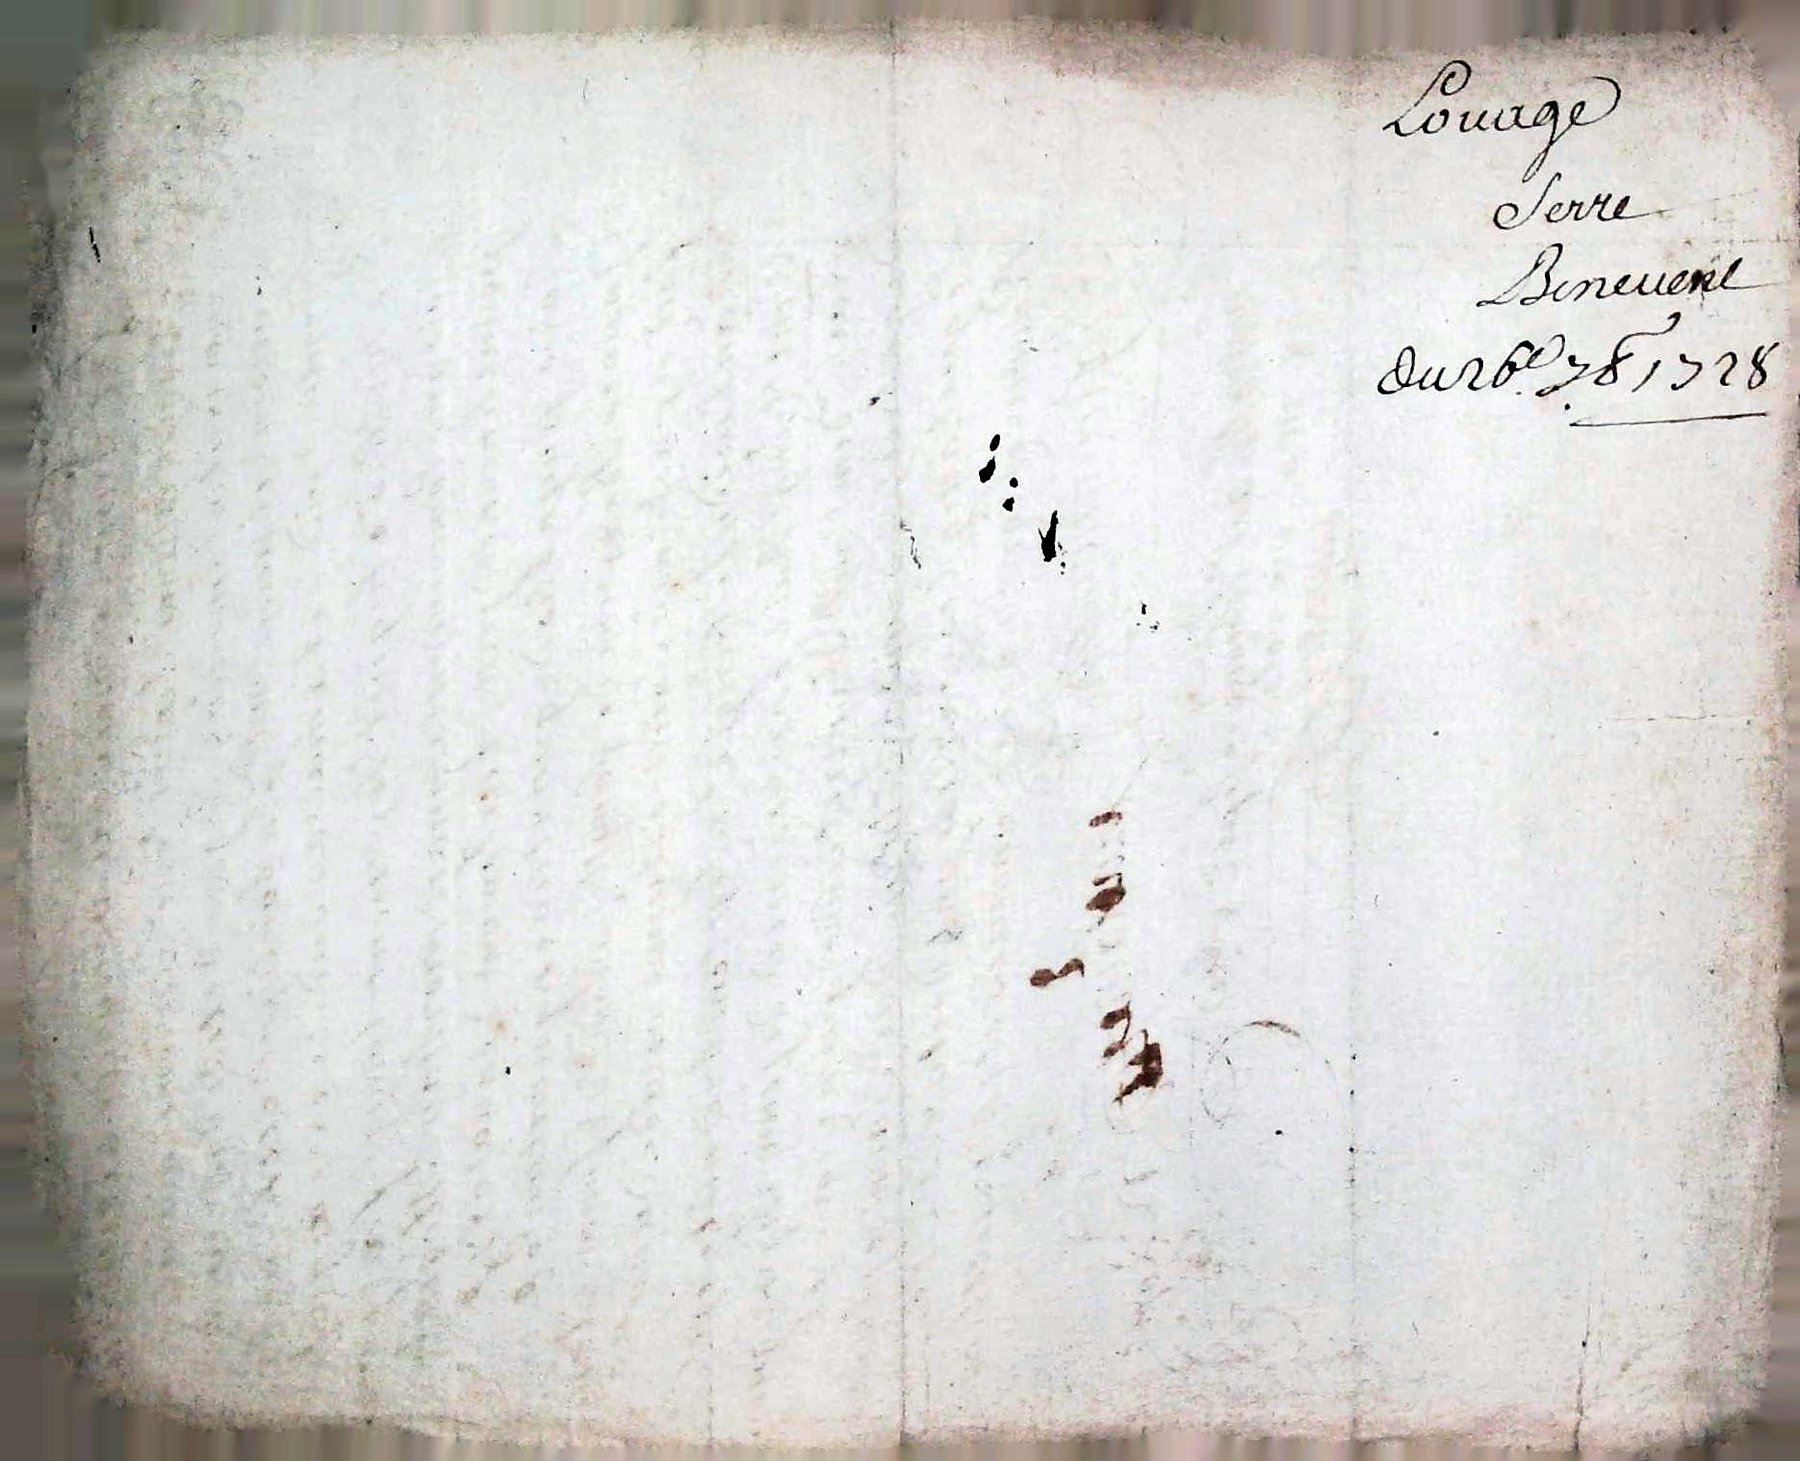 Louage
Serre
Beneuent
du 26e. 78r 1728